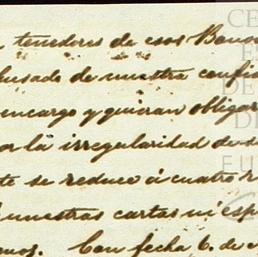 tenedores de esos Bonos
busado de nuestra confia
encargo y quieran obligar
or la irregularidad de s
te se reduce á cuatro r
nuestras cartas ni esp
mos. Con fecha 6. de